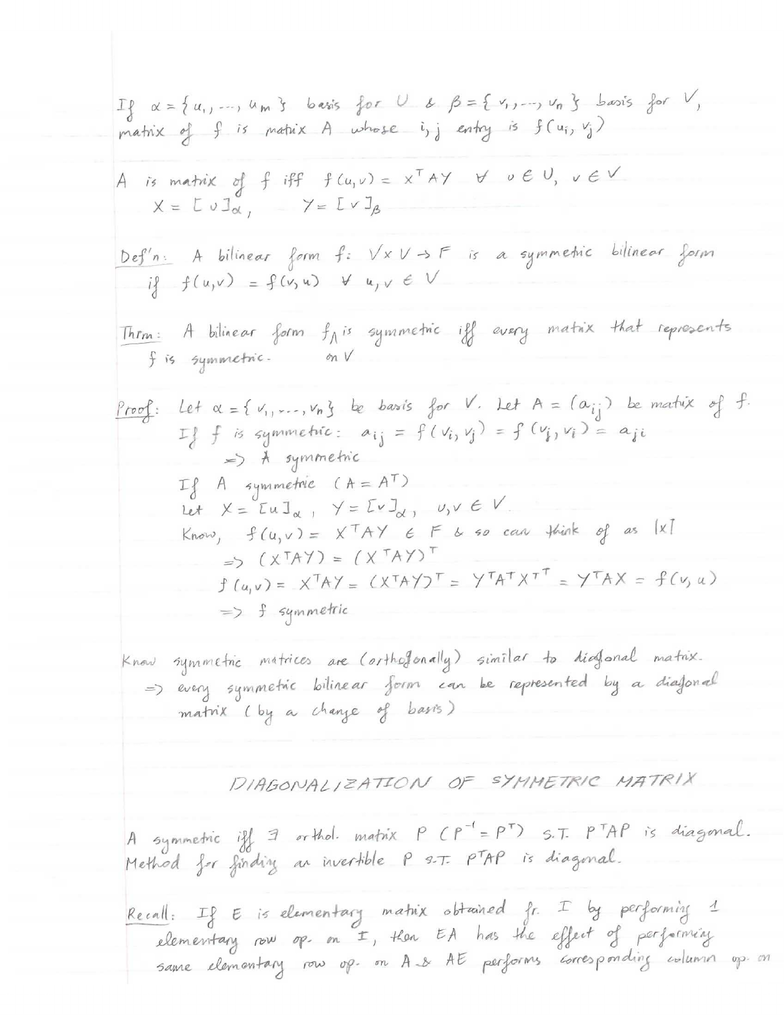 If α = {u₁, ..., uₘ} basis for U & β = {v₁, ..., vₙ} basis for V,
matrix of f is matrix A whose i, j entry is f(uᵢ, vⱼ)
A is matrix of f iff f(u,v) = XᵀAY ∀ u ∈ U, v ∈ V
X = [u]α, Y = [v]β
Def'n: A bilinear form f: V×V → F is a symmetric bilinear form
if f(u,v) = f(v,u) ∀ u, v ∈ V
Thrm: A bilinear form f ^ is symmetric iff every matrix that represents
f is symmetric. on V
Proof: Let α = {v₁, ..., vₙ} be basis for V. Let A = (aᵢⱼ) be matrix of f.
If f is symmetric: aᵢⱼ = f(vᵢ, vⱼ) = f(vⱼ, vᵢ) = aⱼᵢ
=> A symmetric
If A symmetric (A = Aᵀ)
Let X = [u]α, Y = [v]α, u, v ∈ V
Know, f(u,v) = XᵀAY ∈ F & so can think of as 1x1
=> (XᵀAY) = (XᵀAY)ᵀ
f(u,v) = XᵀAY = (XᵀAY)ᵀ = YᵀAᵀXᵀᵀ = YᵀAX = f(v,u)
=> f symmetric
Know symmetric matrices are (orthogonally) similar to diagonal matrix.
=> every symmetric bilinear form can be represented by a diagonal
matrix (by a change of basis)
DIAGONALIZATION OF SYMMETRIC MATRIX
A symmetric iff ∃ orthol. matrix P (P⁻¹ = Pᵀ) S.T. PᵀAP is diagonal.
Method for finding an invertible P S.T. PᵀAP is diagonal.
Recall: If E is elementary matrix obtained fr. I by performing 1
elementary row op. on I, then EA has the effect of performing
same elementary row op. on A & AE performs corresponding column op. on